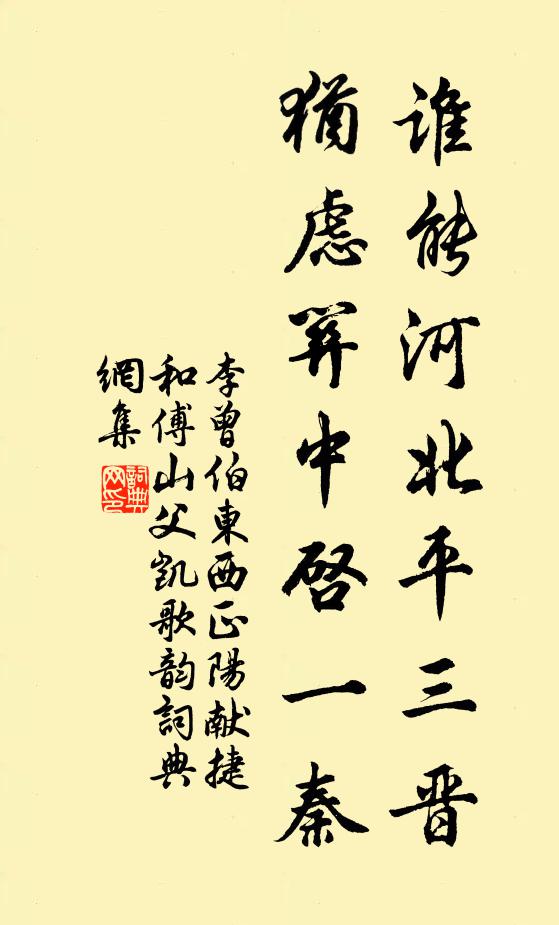 誰能河北平三晋
猶慮關中啓一秦
李曾伯東西正陽献捷
和傅山父凱歌韵詞典
網集
詞典網印